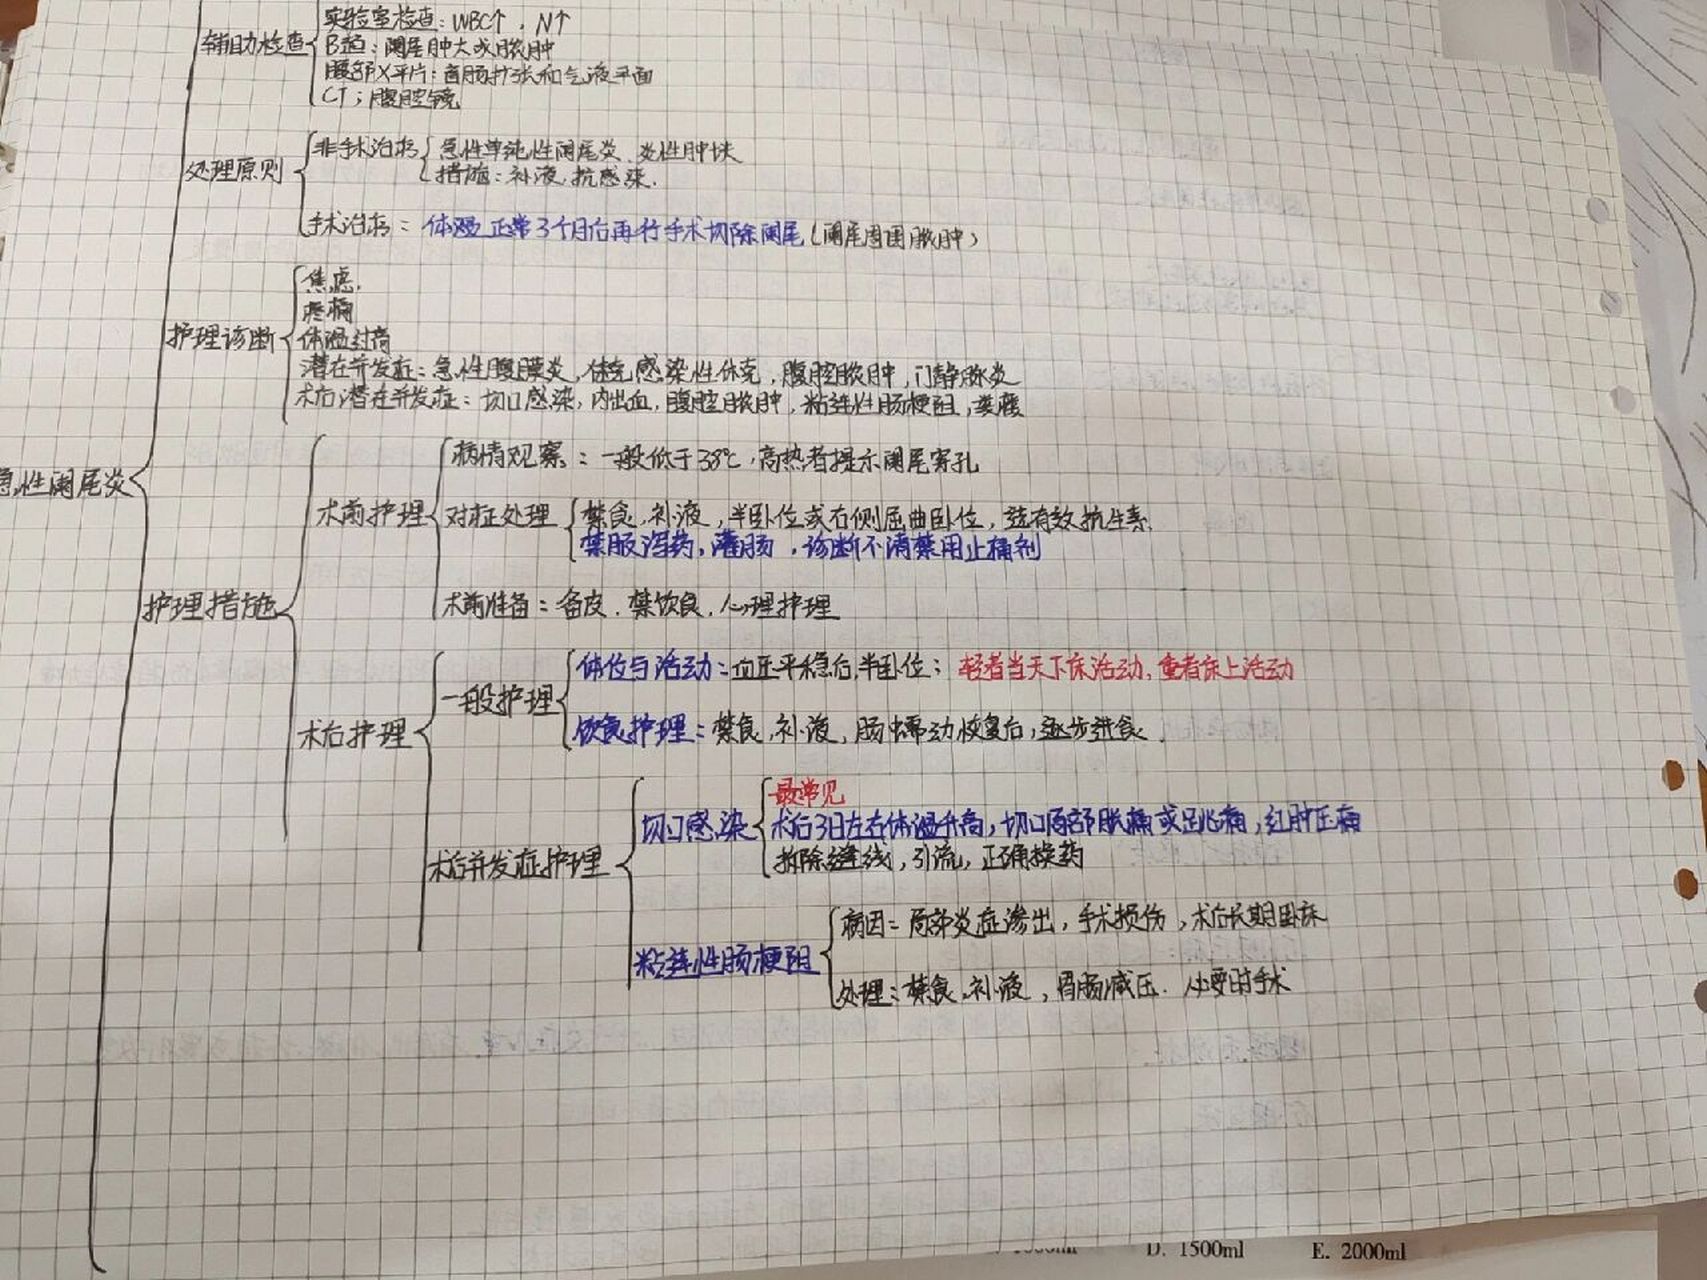 辅助检查
实验室检查：WBC↑，N↑
B超：阑尾肿大或脓肿
腹部X平片：盲肠扩张和气液平面
CT；腹腔镜
处理原则
非手术治疗
急性单纯性阑尾炎、炎性肿块
措施：补液，抗感染.
手术治疗：体温正常3个月后再行手术切除阑尾（阑尾周围脓肿）
护理诊断
焦虑.
疼痛
体温过高
潜在并发症：急性腹膜炎，休克感染性休克，腹腔脓肿，门静脉炎
术后潜在并发症：切口感染，内出血，腹腔脓肿，粘连性肠梗阻，粪瘘
急性阑尾炎
护理措施
术前护理
病情观察：一般低于38℃，高热者提示阑尾穿孔
对症处理
禁食，补液，半卧位或右侧屈曲卧位，有效抗生素.
禁服泻药，灌肠，诊断不清禁用止痛剂
术前准备：备皮，禁饮食，心理护理
术后护理
一般护理
体位与活动：血压平稳后，半卧位；轻者当天下床活动，重者床上活动
饮食护理：禁食，补液，肠蠕动恢复后，逐步进食.
术后并发症护理
切口感染
最常见
术后3日左右体温升高，切口局部胀痛或跳痛，红肿压痛
拆除缝线，引流，正确换药
粘连性肠梗阻
病因：局部炎症渗出，手术损伤，术后长期卧床
处理：禁食，补液，胃肠减压. 必要时手术
D. 1500ml E. 2000ml